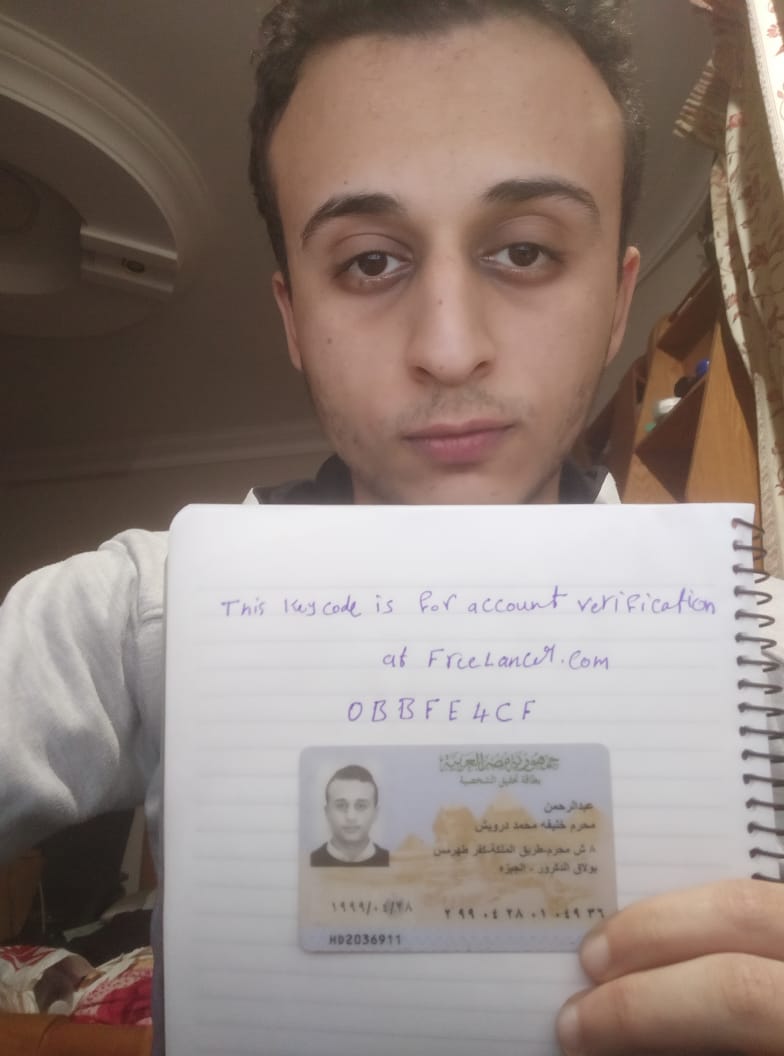 This Keycode is for account verification
at FreeLancer.com
0BBFE4CF
جمهورية مصر العربية
بطاقة تحقيق الشخصية
عبدالرحمن
محرم خليفه محمد درويش
٨ ش محرم-طريق الملكة-كفر طهرمس
بولاق الدكرور - الجيزه
١٩٩٩/٠٤/٢٨
٢ ٩٩ ٠٤ ٢٨ ٠١ ٠٤٩ ٣٦
HD2036911